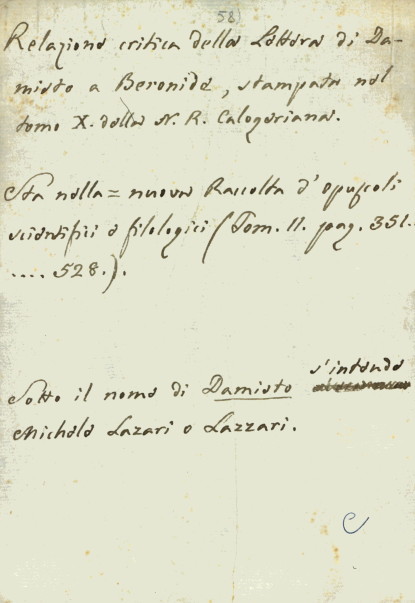 58
Relazione critica della Lettera di Da-
misto a Beronide, stampata nel
tomo X. della N. R. Calogeriana.
Sta nella = nuova Raccolta d'opuscoli
scientifici e filologici (Tom. II. pag. 351.
.... 528.).
s'intende
Sotto il nome di Damisto
Michele Lazari o Lazzari.
C